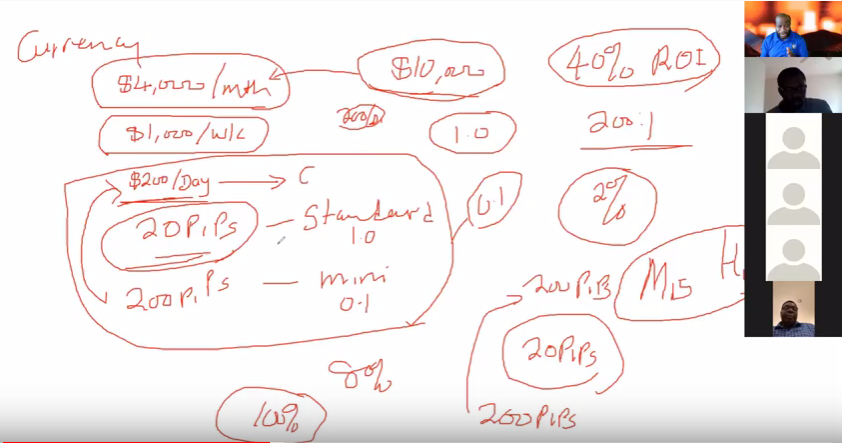 Currency
$4,000/mth
$10,000
40% ROI
$1,000/wk
200%
1.0
200:1
$200/Day
C
0.1
2%
20PiPs — Standard
1.0
200PiPs — mini
0.1
200PiPs
M15
H
20PiPs
8%
100%
200PiPs